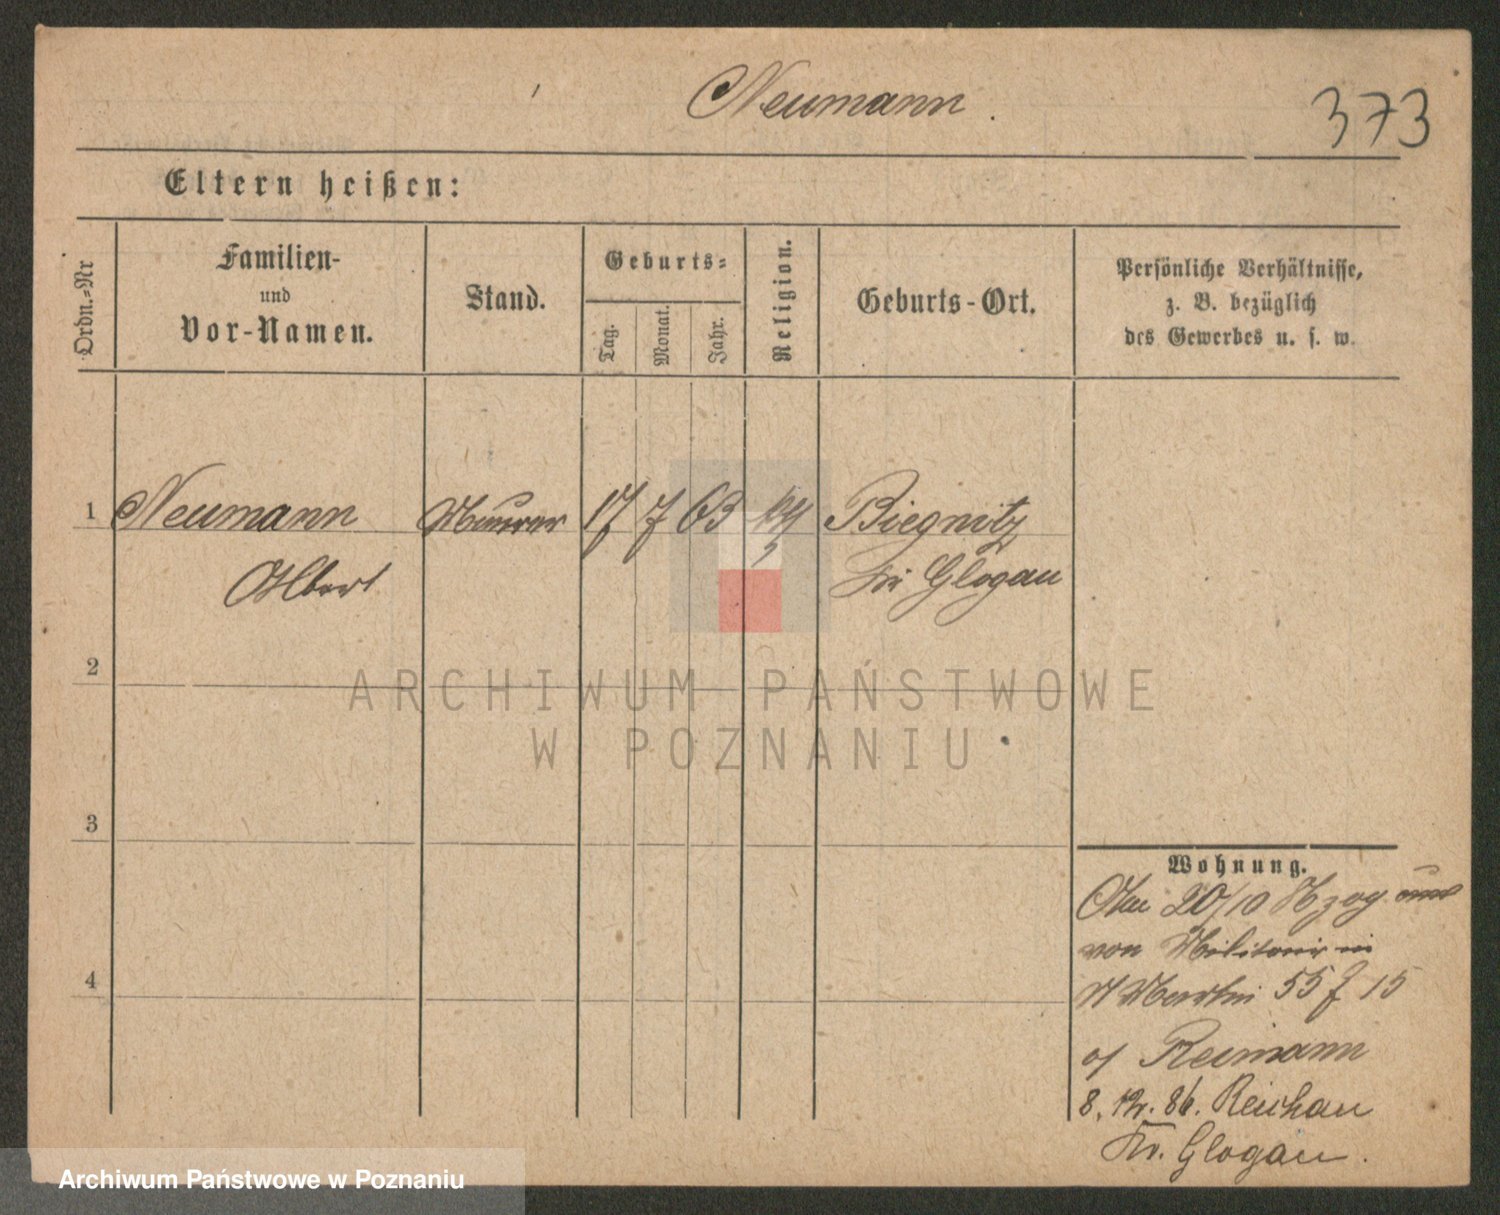 Neumann.
373
Eltern heißen:
Ordn.-Nr
Familien-
und
Vor-Namen.
Stand.
Geburts-
Tag.
Monat.
Jahr.
Religion.
Geburts-Ort.
Persönliche Verhältnisse,
z. B. bezüglich
des Gewerbes u. s. w.
1 Neumann Maurer 17 7 63 Biegnitz
Albert Kr Glogau
2
3
4
Wohnung.
20/10
von Militair in
St Martin 55 15
Reimann
8. 12. 86.
Kr. Glogau.
ARCHIWUM PAŃSTWOWE
W POZNANIU
Archiwum Państwowe w Poznaniu